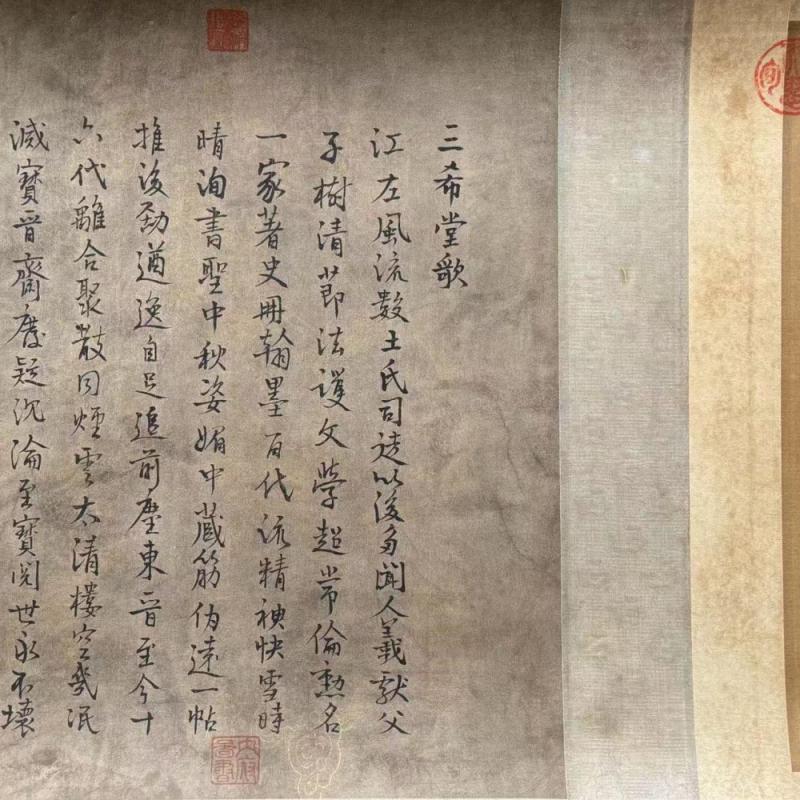 三希堂歌
江左風流數王氏司徒以後多聞人羲獻父
子樹清莭法護文學超常倫勲名
一家著史冊翰墨百代流精神快雪時
晴洵書聖中秋姿媚中藏筋伯遠一帖
推後勁遒逸自足追前塵東晉至今十
六代離合聚散同煙雲太清樓空幾泯
滅寶晉齋廢疑沉淪至寶閱世永不壞